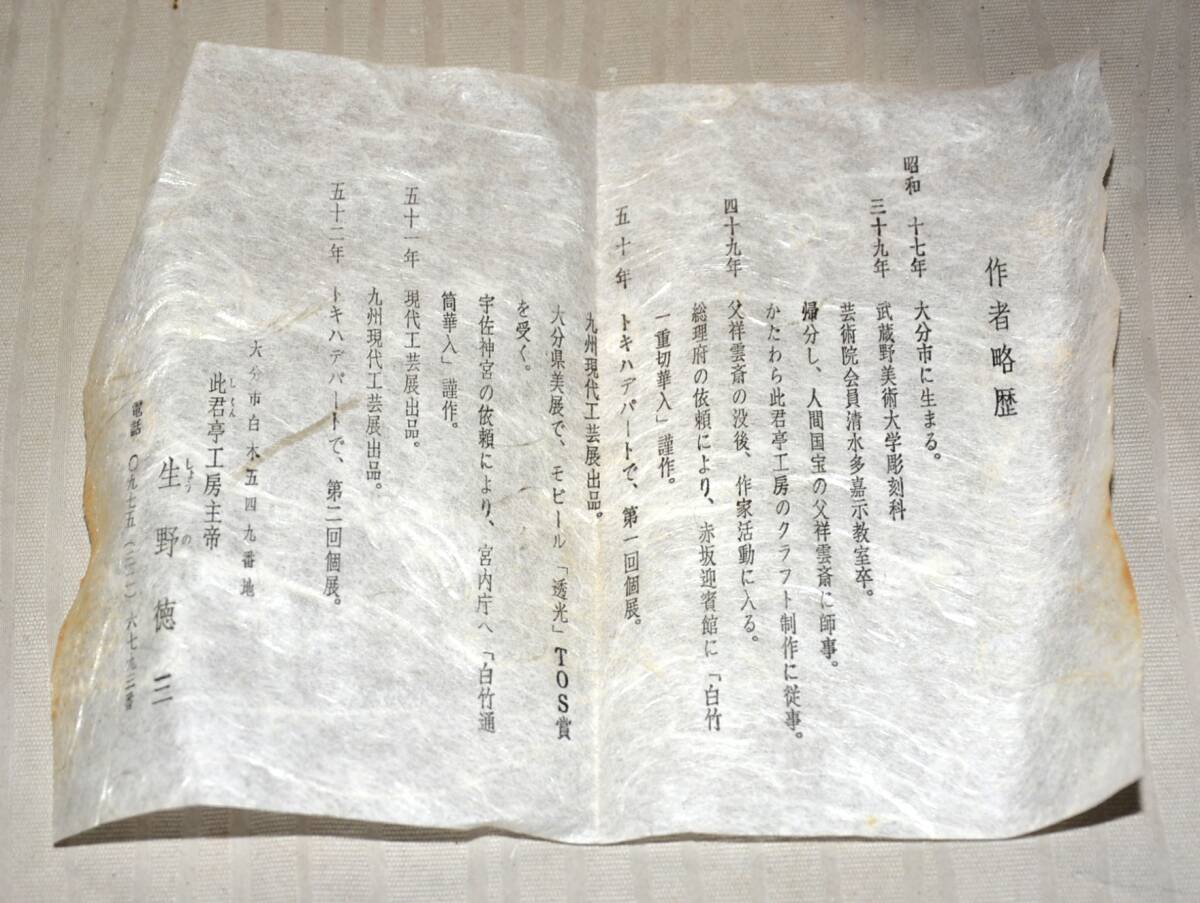 作者略歴
昭和 十七年 大分市に生まる。
三十九年 武蔵野美術大学彫刻科
芸術院会員清水多嘉示教室卒。
帰分し、人間国宝の父祥雲斎に師事。
かたわら此君亭工房のクラフト制作に従事。
四十九年 父祥雲斎の没後、作家活動に入る。
総理府の依頼により、赤坂迎賓館に「白竹
一重切華入」謹作。
五十年 トキハデパートで、第一回個展。
九州現代工芸展出品。
大分県美展で、モビール「透光」TOS賞
を受く。
宇佐神宮の依頼により、宮内庁へ「白竹通
筒華入」謹作。
五十一年 現代工芸展出品。
九州現代工芸展出品。
五十二年 トキハデパートで、第二回個展。
大分市白木五四九番地
此君亭工房主帝
しくん
生野徳三
しょうの
電話 〇九七五(三二)六七九三番